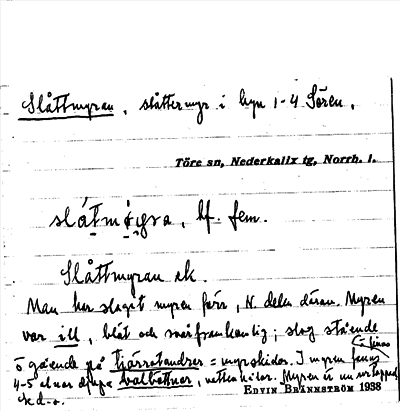 Slåttmyran, slåttermyr i hmn 1-4 Sören.
Töre sn, Nederkalix tg, Norrb. l.
slåtmyra, bf. fem.
Slåttmyran ek.
Man har slagit myren förr, N delen däran. Myren
var ill, blöt och svårframkomlig; slog stående
o gående på tjärrståndrer = myrskidor. I myren finns
4-5 alnar djupa valbottnar, vattenhålor. Myren är nu urtappad
ek d.o.
EDVIN BRÄNNSTRÖM 1938